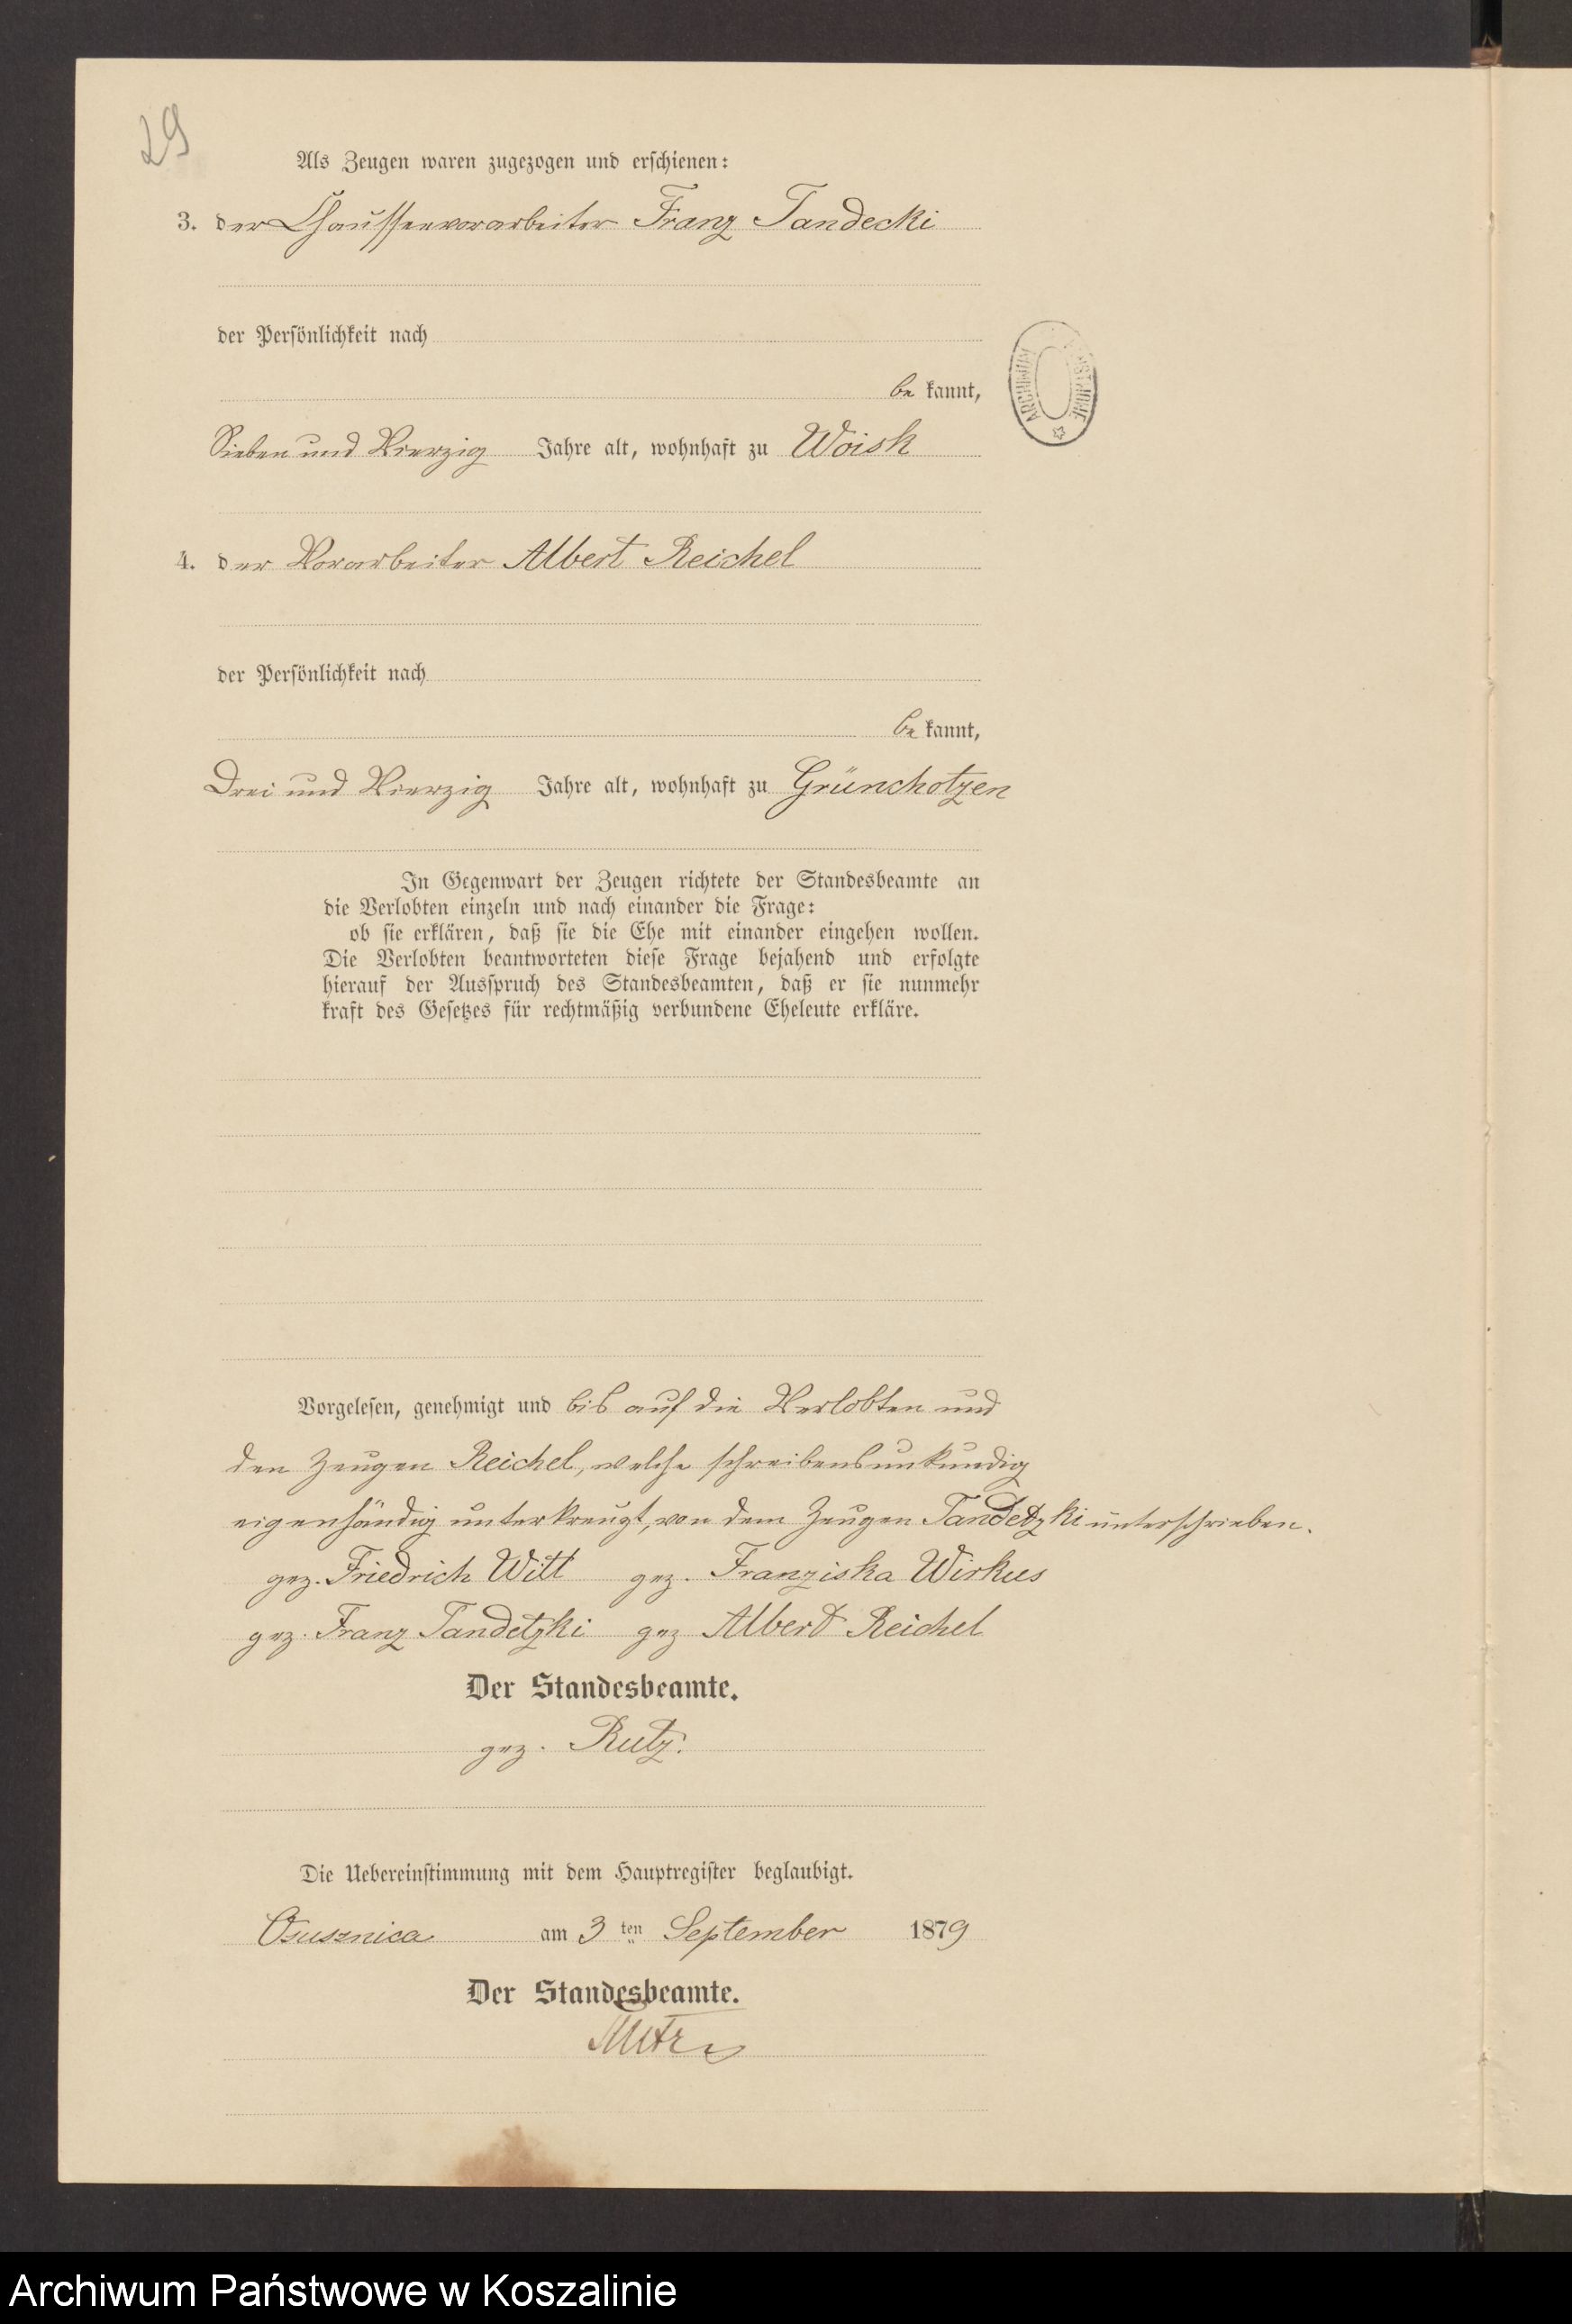 29
Als Zeugen waren zugezogen und erschienen:
3. der Chausseevorarbeiter Franz Tandecki
der Persönlichkeit nach
be kannt,
Sieben und Vierzig Jahre alt, wohnhaft zu Woisk
4. der Vorarbeiter Albert Reichel
der Persönlichkeit nach
be kannt,
Drei und Vierzig Jahre alt, wohnhaft zu Grünchotzen
In Gegenwart der Zeugen richtete der Standesbeamte an
die Verlobten einzeln und nach einander die Frage:
ob sie erklären, daß sie die Ehe mit einander eingehen wollen.
Die Verlobten beantworteten diese Frage bejahend und erfolgte
hierauf der Ausspruch des Standesbeamten, daß er sie nunmehr
kraft des Gesetzes für rechtmäßig verbundene Eheleute erkläre.
Vorgelesen, genehmigt und bis auf die Verlobten und
den Zeugen Reichel, welche schreibensunkundig
eigenhändig unterkreuzt, von dem Zeugen Tandetzki unterschrieben.
gez. Friedrich Witt gez. Franziska Wirkus
gez. Franz Tandetzki gez Albert Reichel
Der Standesbeamte.
gez. Rutz.
Die Uebereinstimmung mit dem Hauptregister beglaubigt.
Osusznica am 3 ten September 1879
Der Standesbeamte.
Archiwum Państwowe w Koszalinie